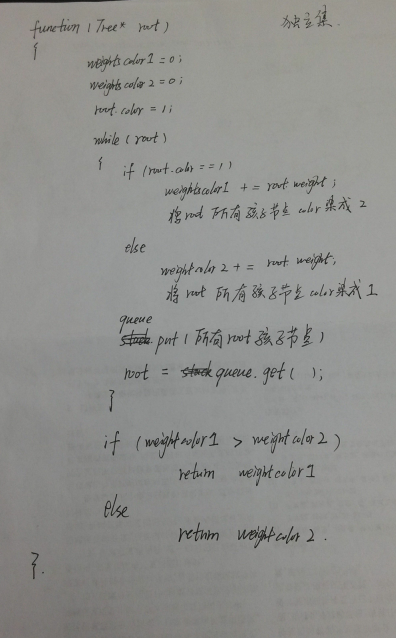 function (Tree* root)
独立集.
{
weightscolor1 = 0;
weightscolor2 = 0;
root.color = 1;
while (root)
{
if (root.color == 1)
weightscolor1 += root weight;
将root 所有孩子节点 color 染成 2
else
weightcolor2 += root weight;
将 root 所有孩子节点 color染成 1
queue
stack.put (所有root孩子节点)
root = stack queue.get( );
}
if (weightcolor1 > weightcolor2)
return weightcolor1
else
return weightcolor2.
}.